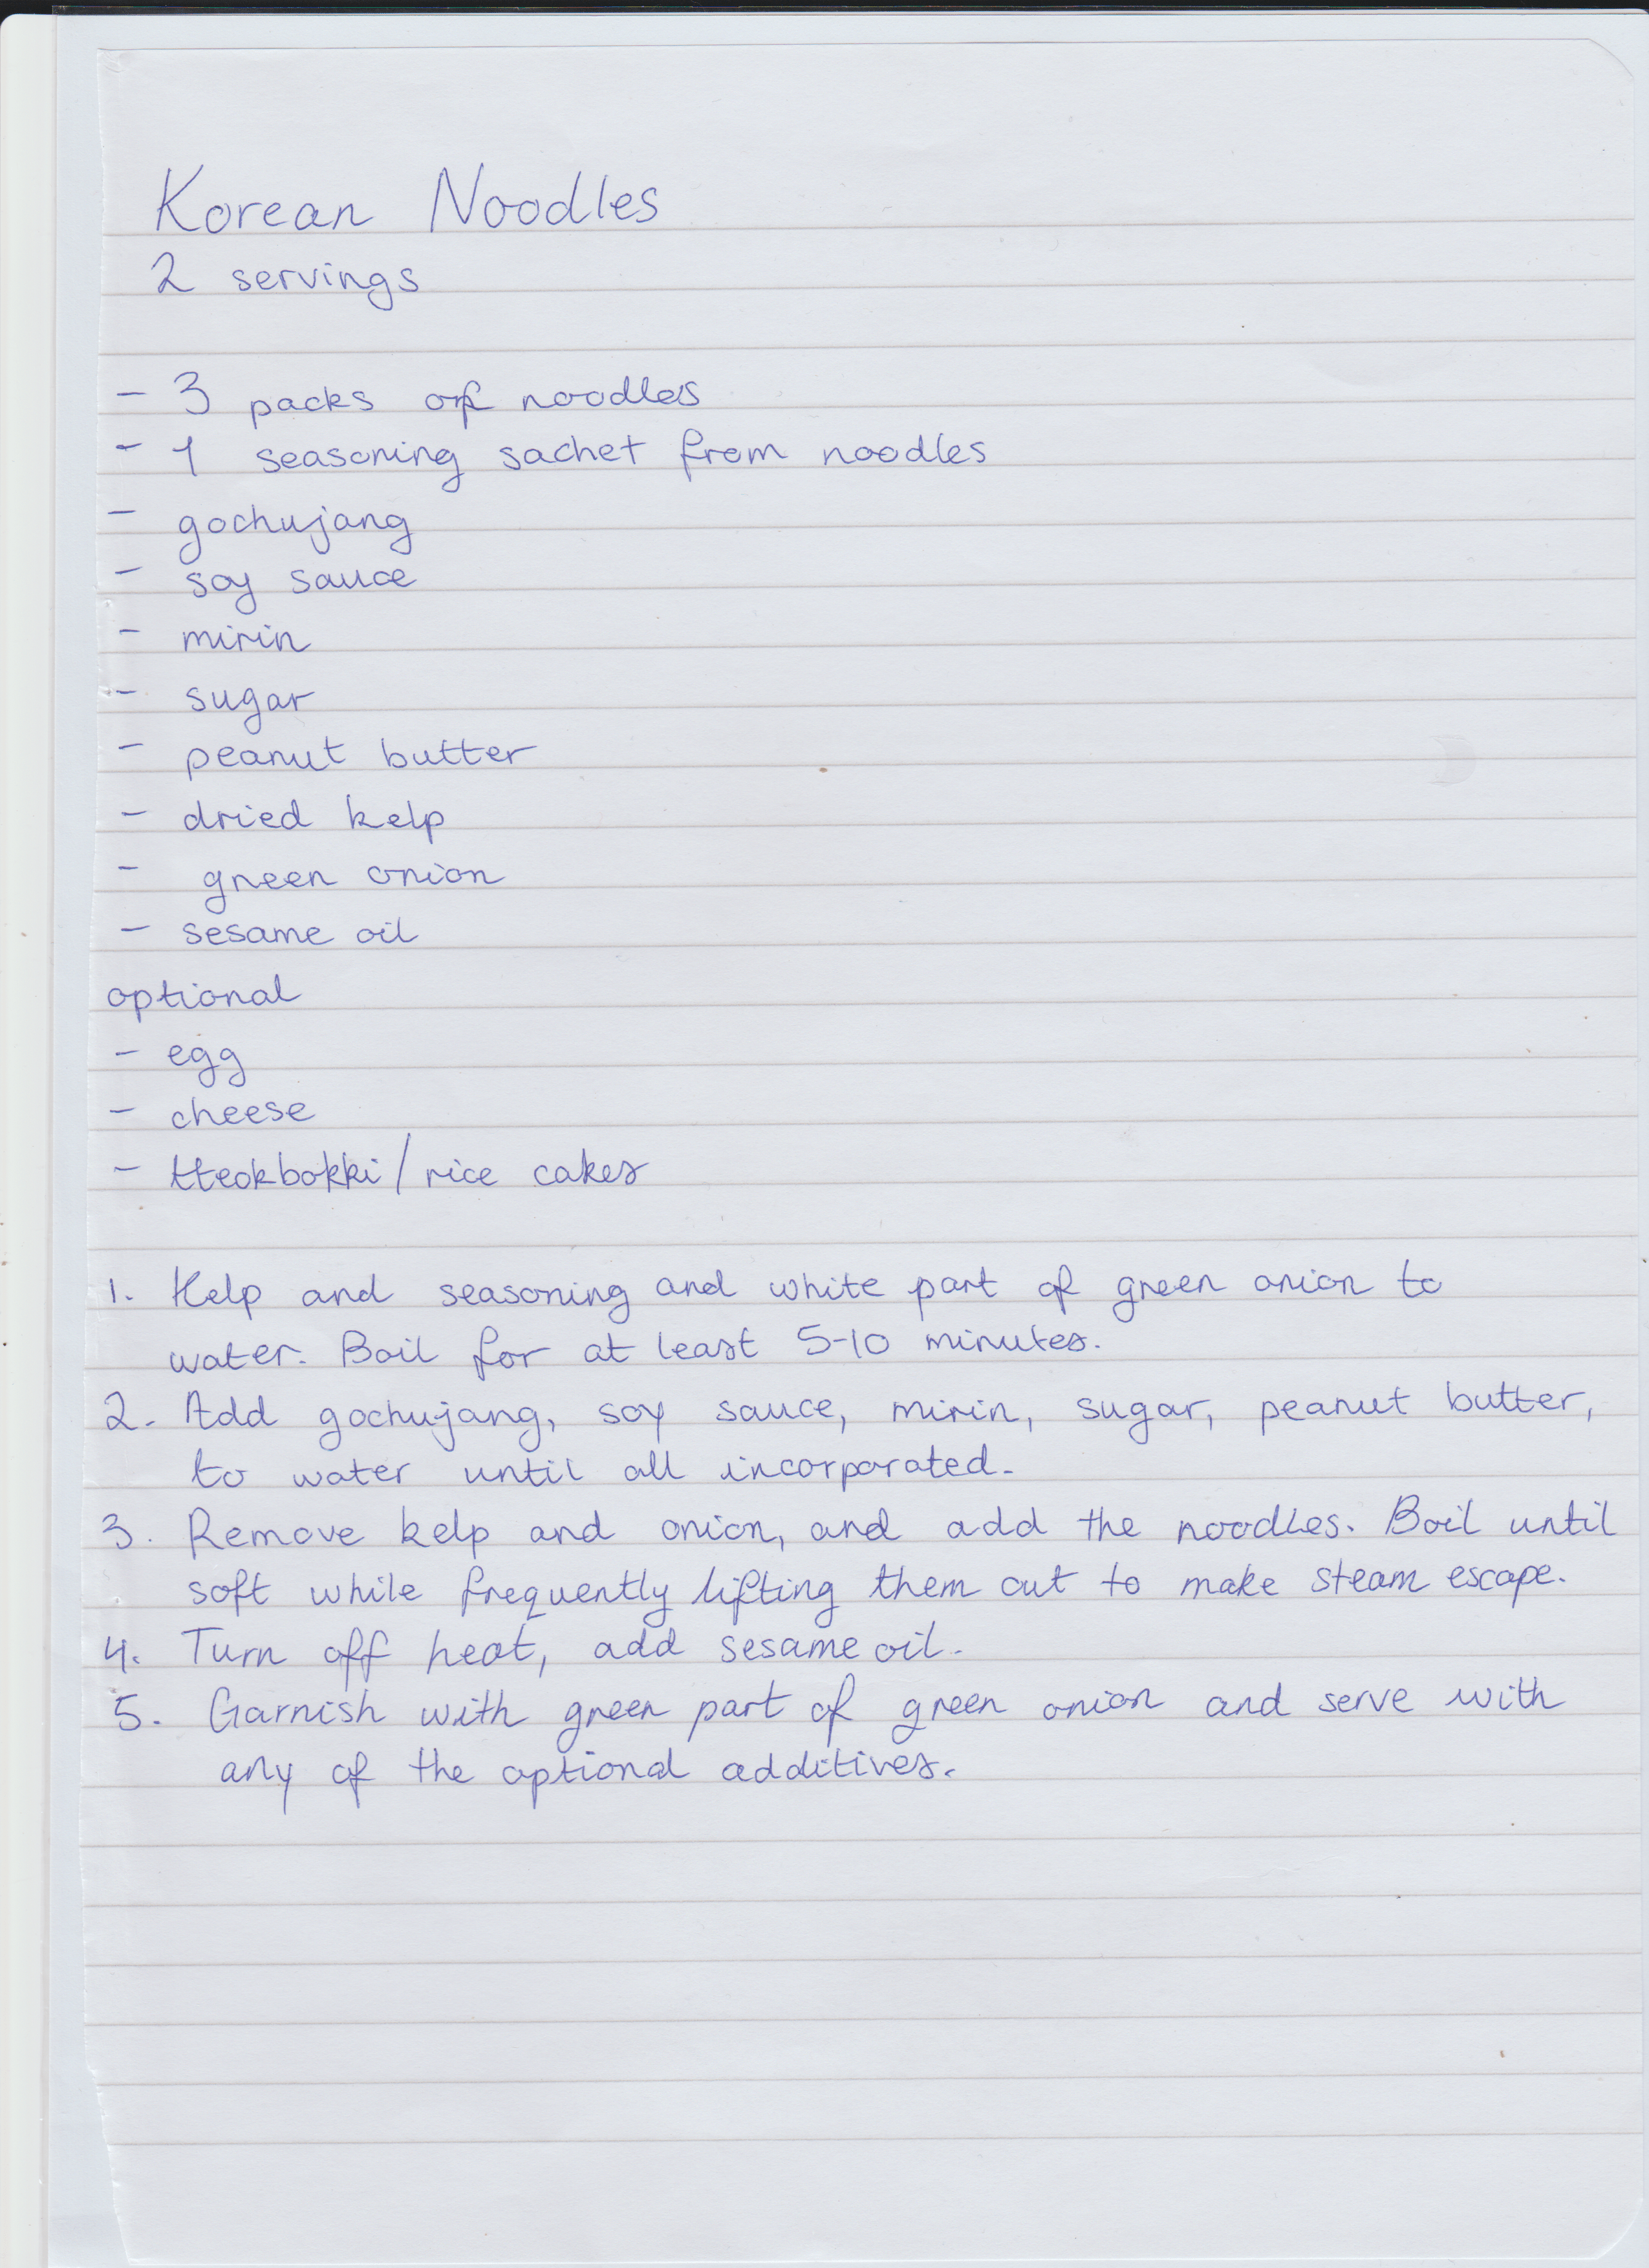 Korean Noodles
2 servings
- 3 packs of noodles
- 1 seasoning sachet from noodles
- gochujang
- soy sauce
- mirin
- sugar
- peanut butter
- dried kelp
- green onion
- sesame oil
optional
- egg
- cheese
- tteokbokki/rice cakes
1. Kelp and seasoning and white part of green onion to
water. Boil for at least 5-10 minutes.
2. Add gochujang, soy sauce, mirin, sugar, peanut butter,
to water until all incorporated.
3. Remove kelp and onion, and add the noodles. Boil until
soft while frequently lifting them out to make steam escape.
4. Turn off heat, add sesame oil.
5. Garnish with green part of green onion and serve with
any of the optional additives.